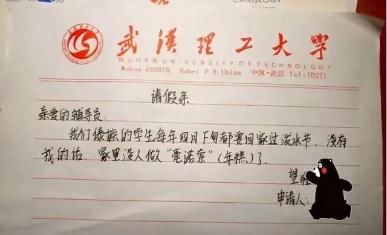 武漢理工大學
WUHAN UNIVERSITY OF TECHNOLOGY
Wuhan 430070, Hubei P.R.China 中国·武汉 Tel:(027)
请假条
亲爱的辅导员
我们傣族的学生每年四月下旬都要回家过泼水节，没有
我的话，家里没人做“毫诺索”(年糕)了.
望
申请人: